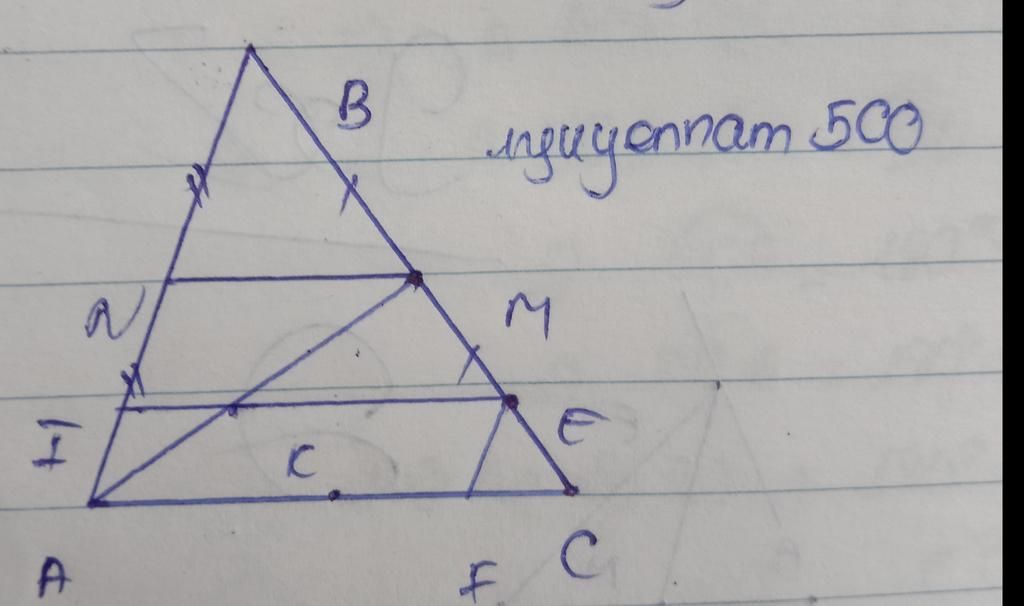 B
nguyennam 500
N
M
I
K
E
A
F
C